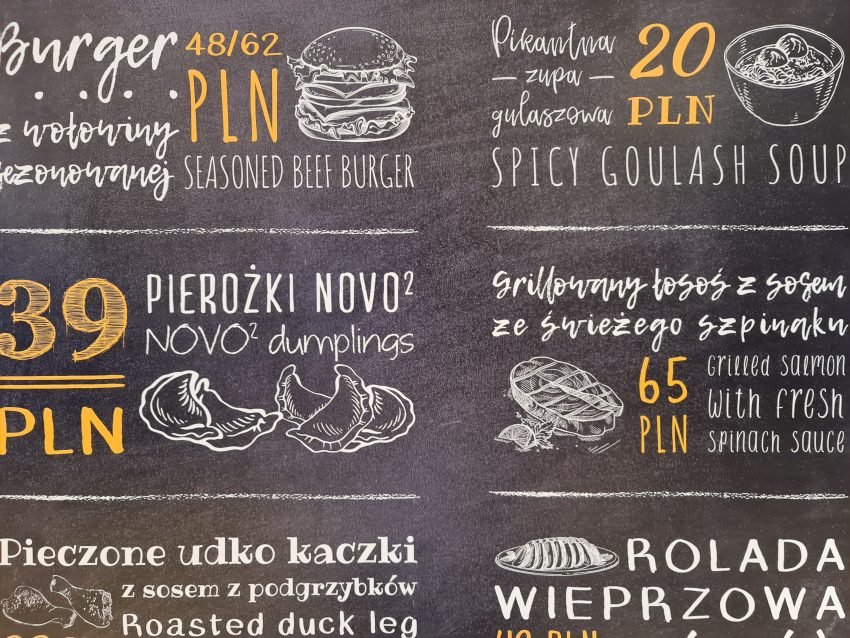 Burger
48/62
PLN
z wołowiny
sezonowanej
SEASONED BEEF BURGER
Pikantna
— zupa —
gulaszowa
20
PLN
SPICY GOULASH SOUP
39
PLN
PIEROŻKI NOVO²
NOVO² dumplings
Grillowany łosoś z sosem
ze świeżego szpinaku
65
PLN
Grilled salmon
with fresh
spinach sauce
Pieczone udko kaczki
z sosem z podgrzybków
Roasted duck leg
ROLADA
WIEPRZOWA
PLN